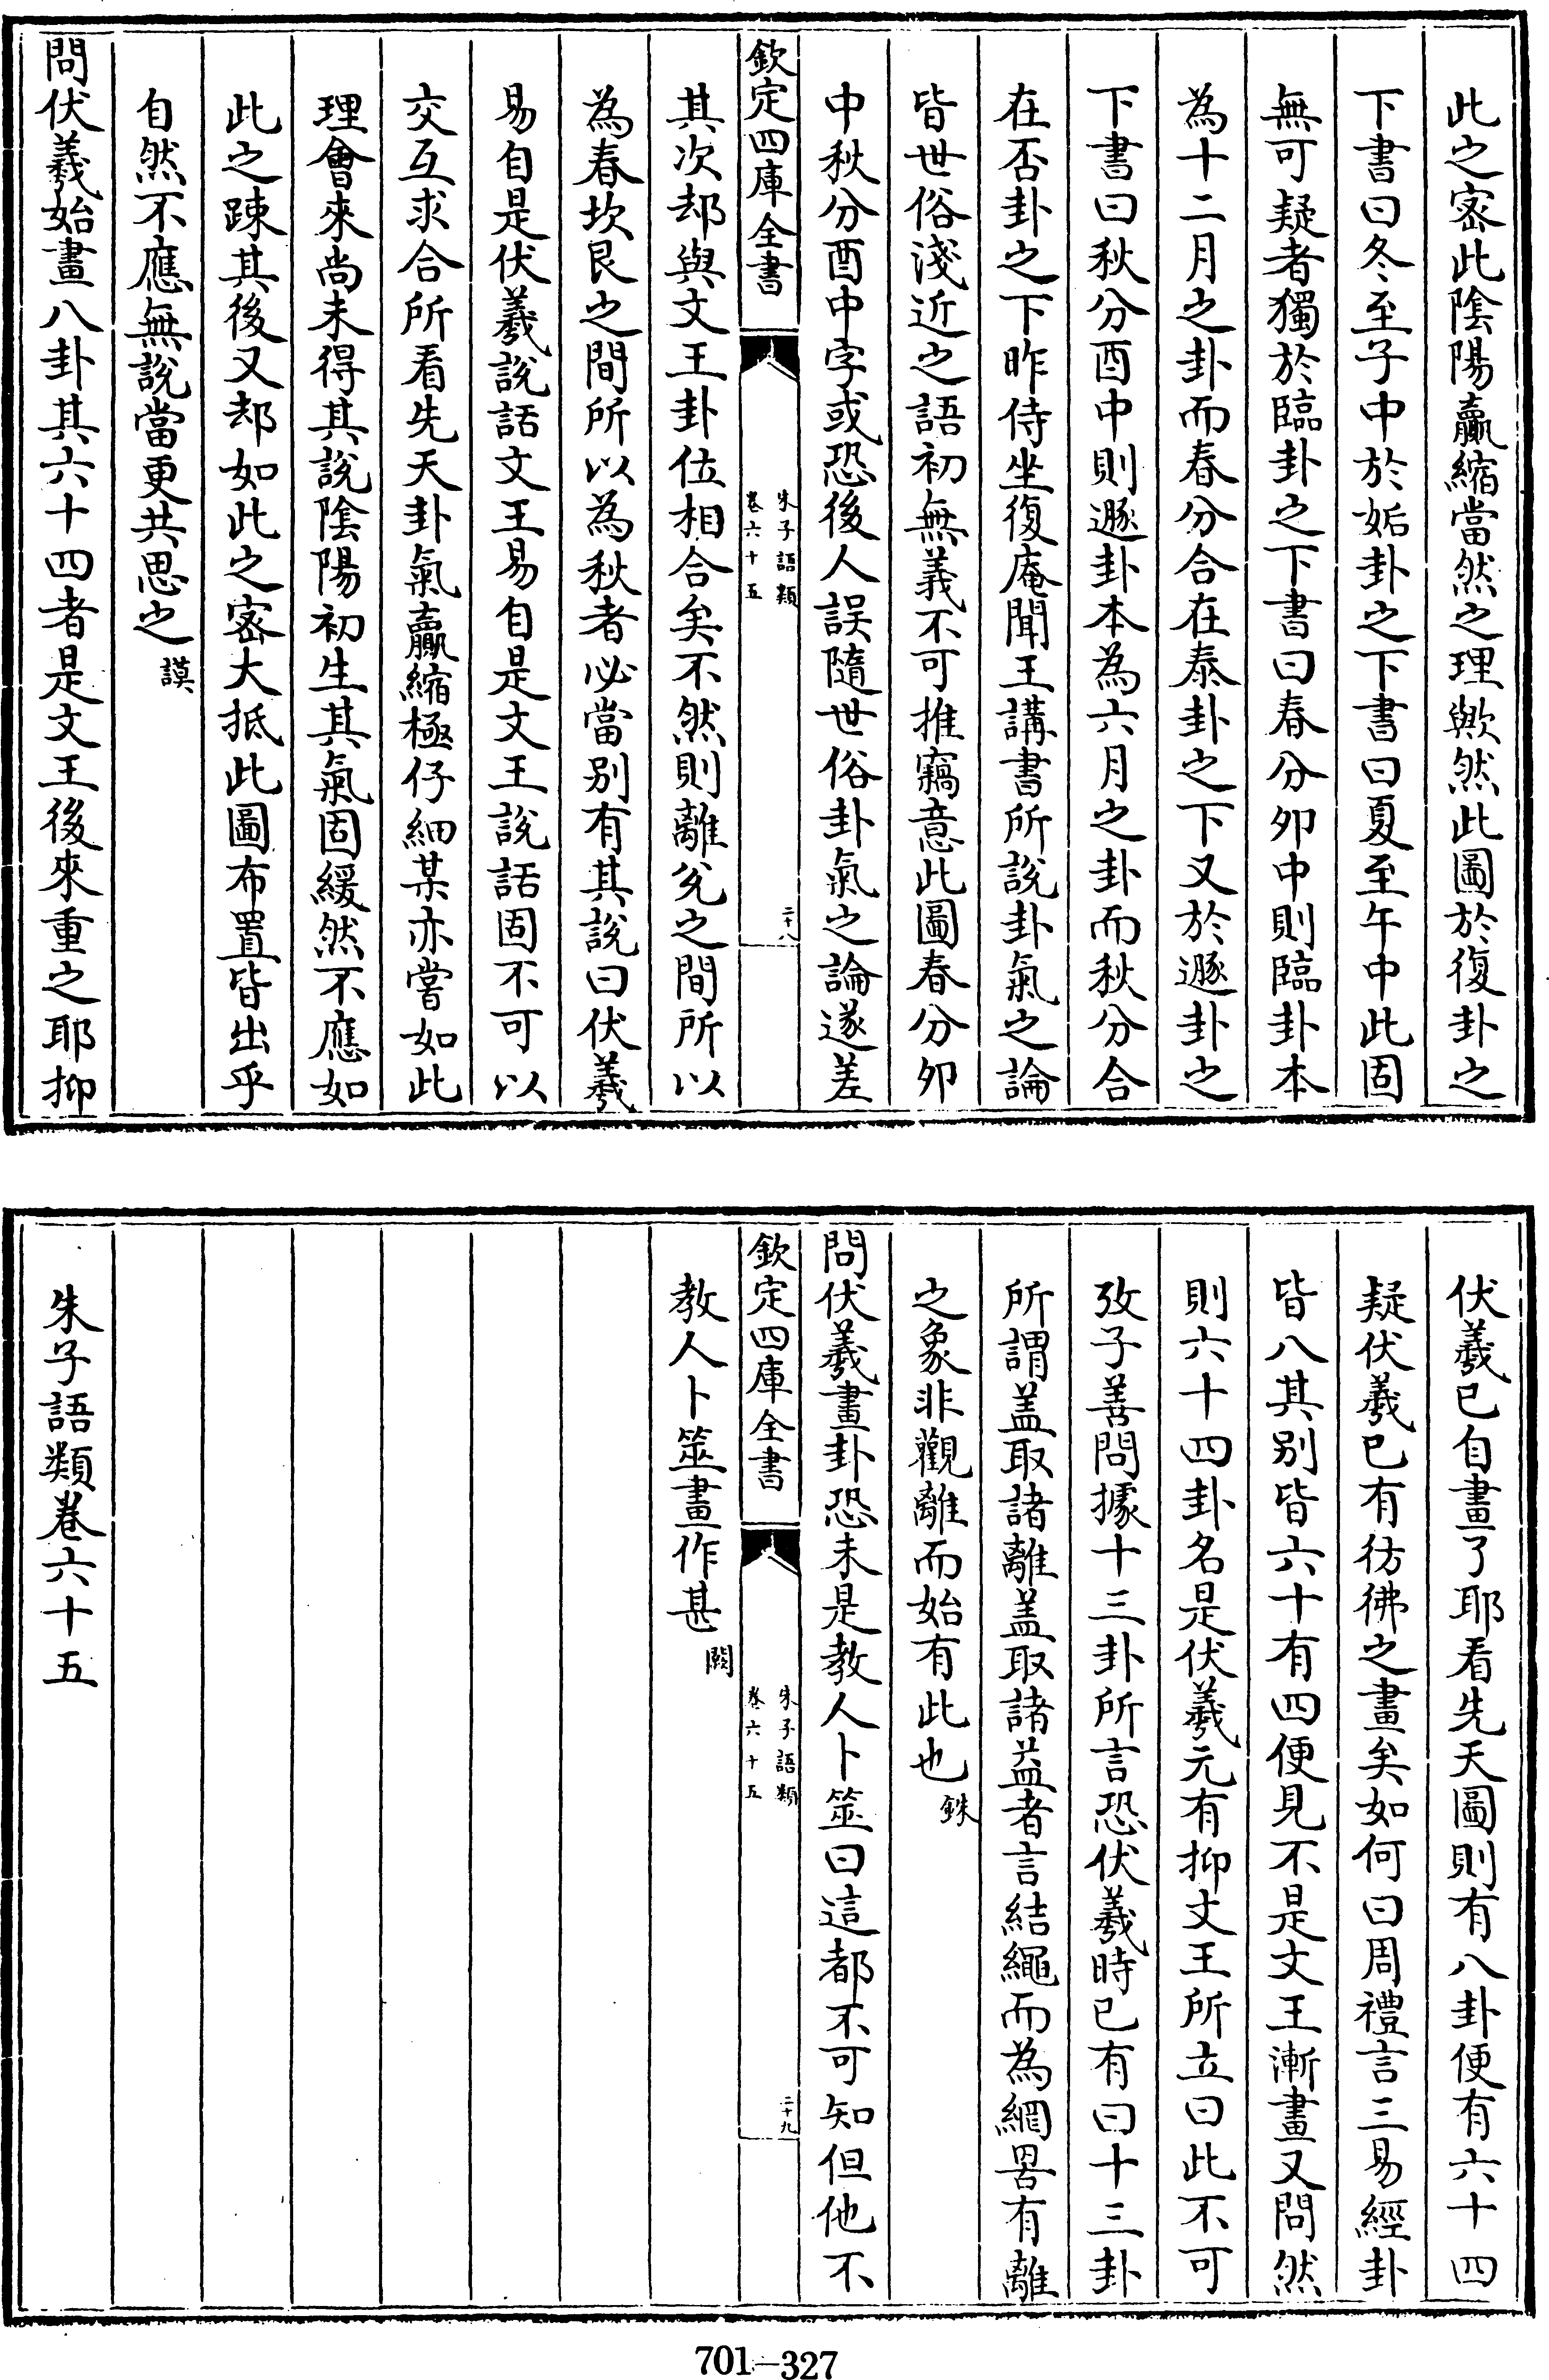 此之宻此陰陽贏縮當然之理歟然此圖於復卦之
下書曰冬至子中於姤卦之下書曰夏至午中此固
無可疑者獨於臨卦之下書曰春分卯中則臨卦本
為十二月之卦而春分合在泰卦之下又於遯卦之
下書曰秋分酉中則遯卦本為六月之卦而秋分合
在否卦之下昨侍坐復庵聞王講書所說卦氣之論
皆世俗淺近之語初無義不可推竊意此圖春分卯
中秋分酉中字或恐後人誤隨世俗卦氣之論遂差
欽定四庫全書
朱子語類
卷六十五
二十八
其次却與文王卦位相合矣不然則離兌之間所以
為春坎艮之間所以為秋者必當别有其説曰伏羲
易自是伏羲說話文王易自是文王說話固不可以
交互求合所看先天卦氣贏縮極仔細某亦嘗如此
理會來尚未得其說陰陽初生其氣固緩然不應如
此之踈其後又却如此之宻大抵此圖布置皆出乎
自然不應無說當更共思之謨
問伏羲始畫八卦其六十四者是文王後來重之耶抑
伏羲已自畫了耶看先天圖則有八卦便有六十四
疑伏羲已有彷彿之畫矣如何曰周禮言三易經卦
皆八其别皆六十有四便見不是文王漸畫又問然
則六十四卦名是伏羲元有抑文王所立曰此不可
攷子善問據十三卦所言恐伏羲時已有曰十三卦
所謂盖取諸離盖取諸益者言結繩而為網罟有離
之象非觀離而始有此也銖
問伏羲畫卦恐未是教人卜筮曰這都不可知但他不
欽定四庫全書
朱子語類
卷六十五
二十九
教人卜筮畫作甚𨷂
朱子語類卷六十五
701-327